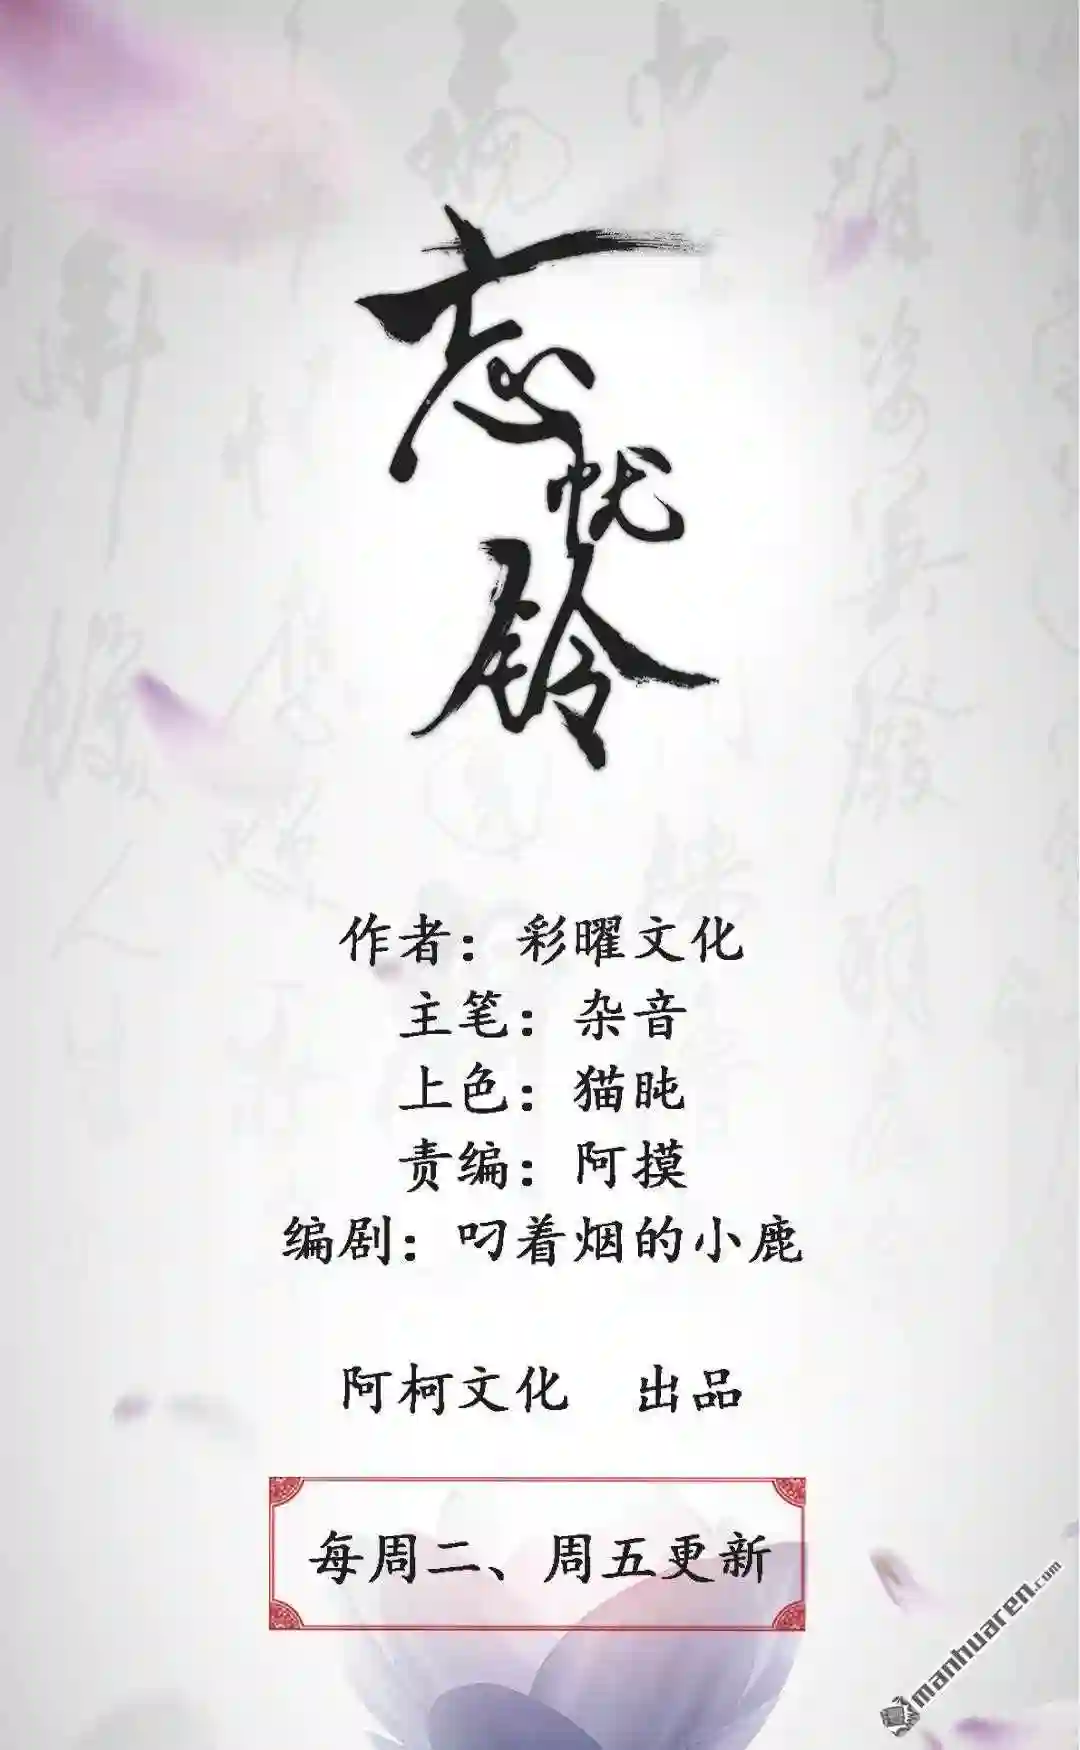 忘忧铃
作者：彩曜文化
主笔：杂音
上色：猫盹
责编：阿摸
编剧：叼着烟的小鹿
阿柯文化 出品
每周二、周五更新
manhuaren.com